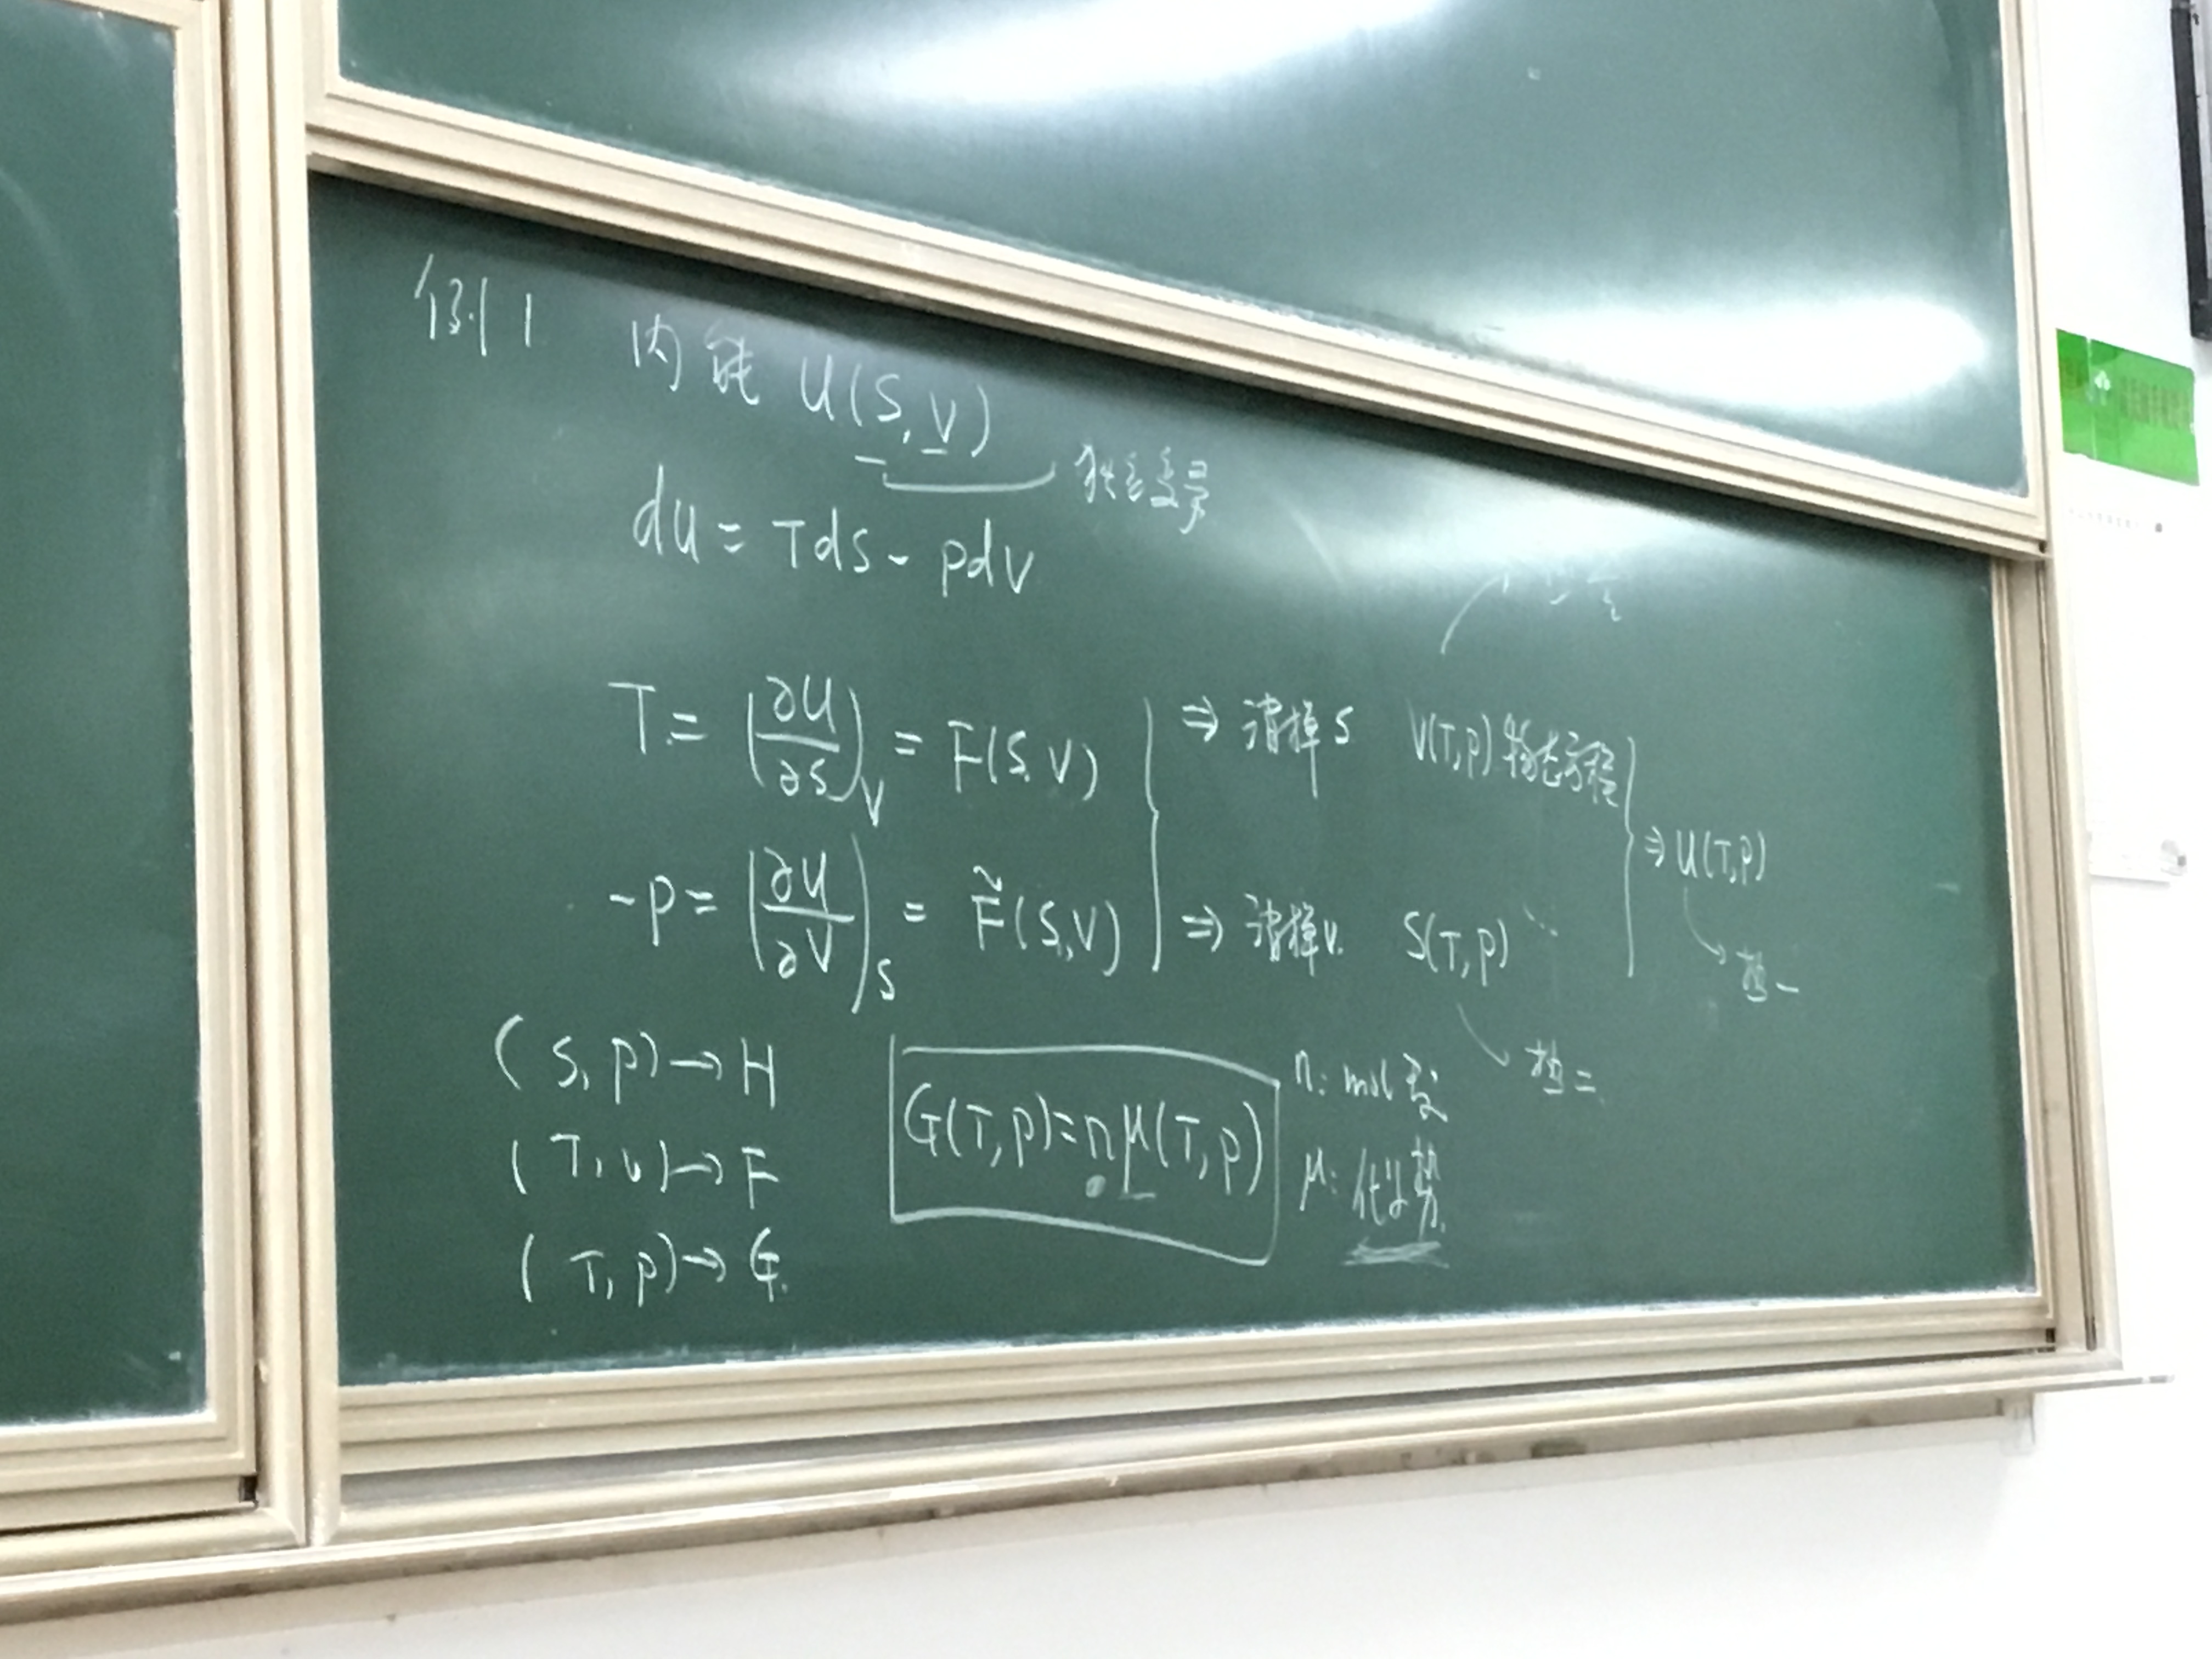 例1 内能 U(S,V)
独立变量
dU = TdS - pdV
T = (∂U/∂S)_V = F(S,V) ⇒ 消掉S V(T,p) 物态方程
⇒ U(T,p)
-p = (∂U/∂V)_S = F̃(S,V) ⇒ 消掉V. S(T,p)
热一
热二
(S,p)→H
(T,V)→F
(T,p)→G.
G(T,p)=nμ(T,p)
n: mol数
μ: 化学势.